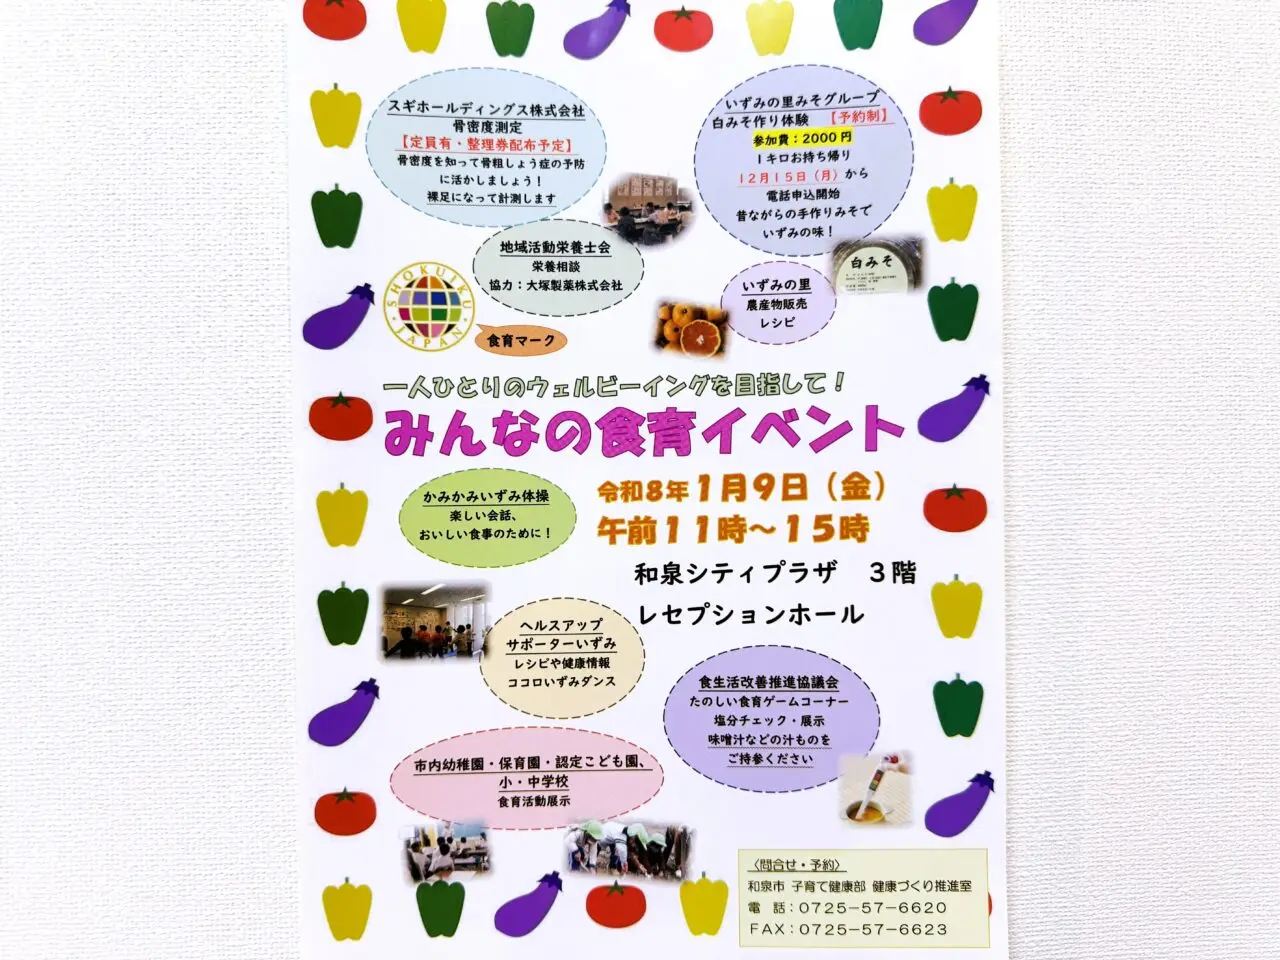 スギホールディングス株式会社
骨密度測定
【定員有・整理券配布予定】
骨密度を知って骨粗しょう症の予防
に活かしましょう！
裸足になって計測します
いずみの里みそグループ
白みそ作り体験　【予約制】
参加費：2000円
1キロお持ち帰り
12月15日（月）から
電話申込開始
昔ながらの手作りみそで
いずみの味！
地域活動栄養士会
栄養相談
協力：大塚製薬株式会社
白みそ
いずみの里
農産物販売
レシピ
SHOKUIKU
JAPAN
食育マーク
一人ひとりのウェルビーイングを目指して！
みんなの食育イベント
かみかみいずみ体操
楽しい会話、
おいしい食事のために！
令和8年1月9日（金）
午前11時～15時
和泉シティプラザ　3階
レセプションホール
ヘルスアップ
サポーターいずみ
レシピや健康情報
ココロいずみダンス
食生活改善推進協議会
たのしい食育ゲームコーナー
塩分チェック・展示
味噌汁などの汁ものを
ご持参ください
市内幼稚園・保育園・認定こども園、
小・中学校
食育活動展示
〈問合せ・予約〉
和泉市 子育て健康部 健康づくり推進室
電　話：0725-57-6620
FAX：0725-57-6623